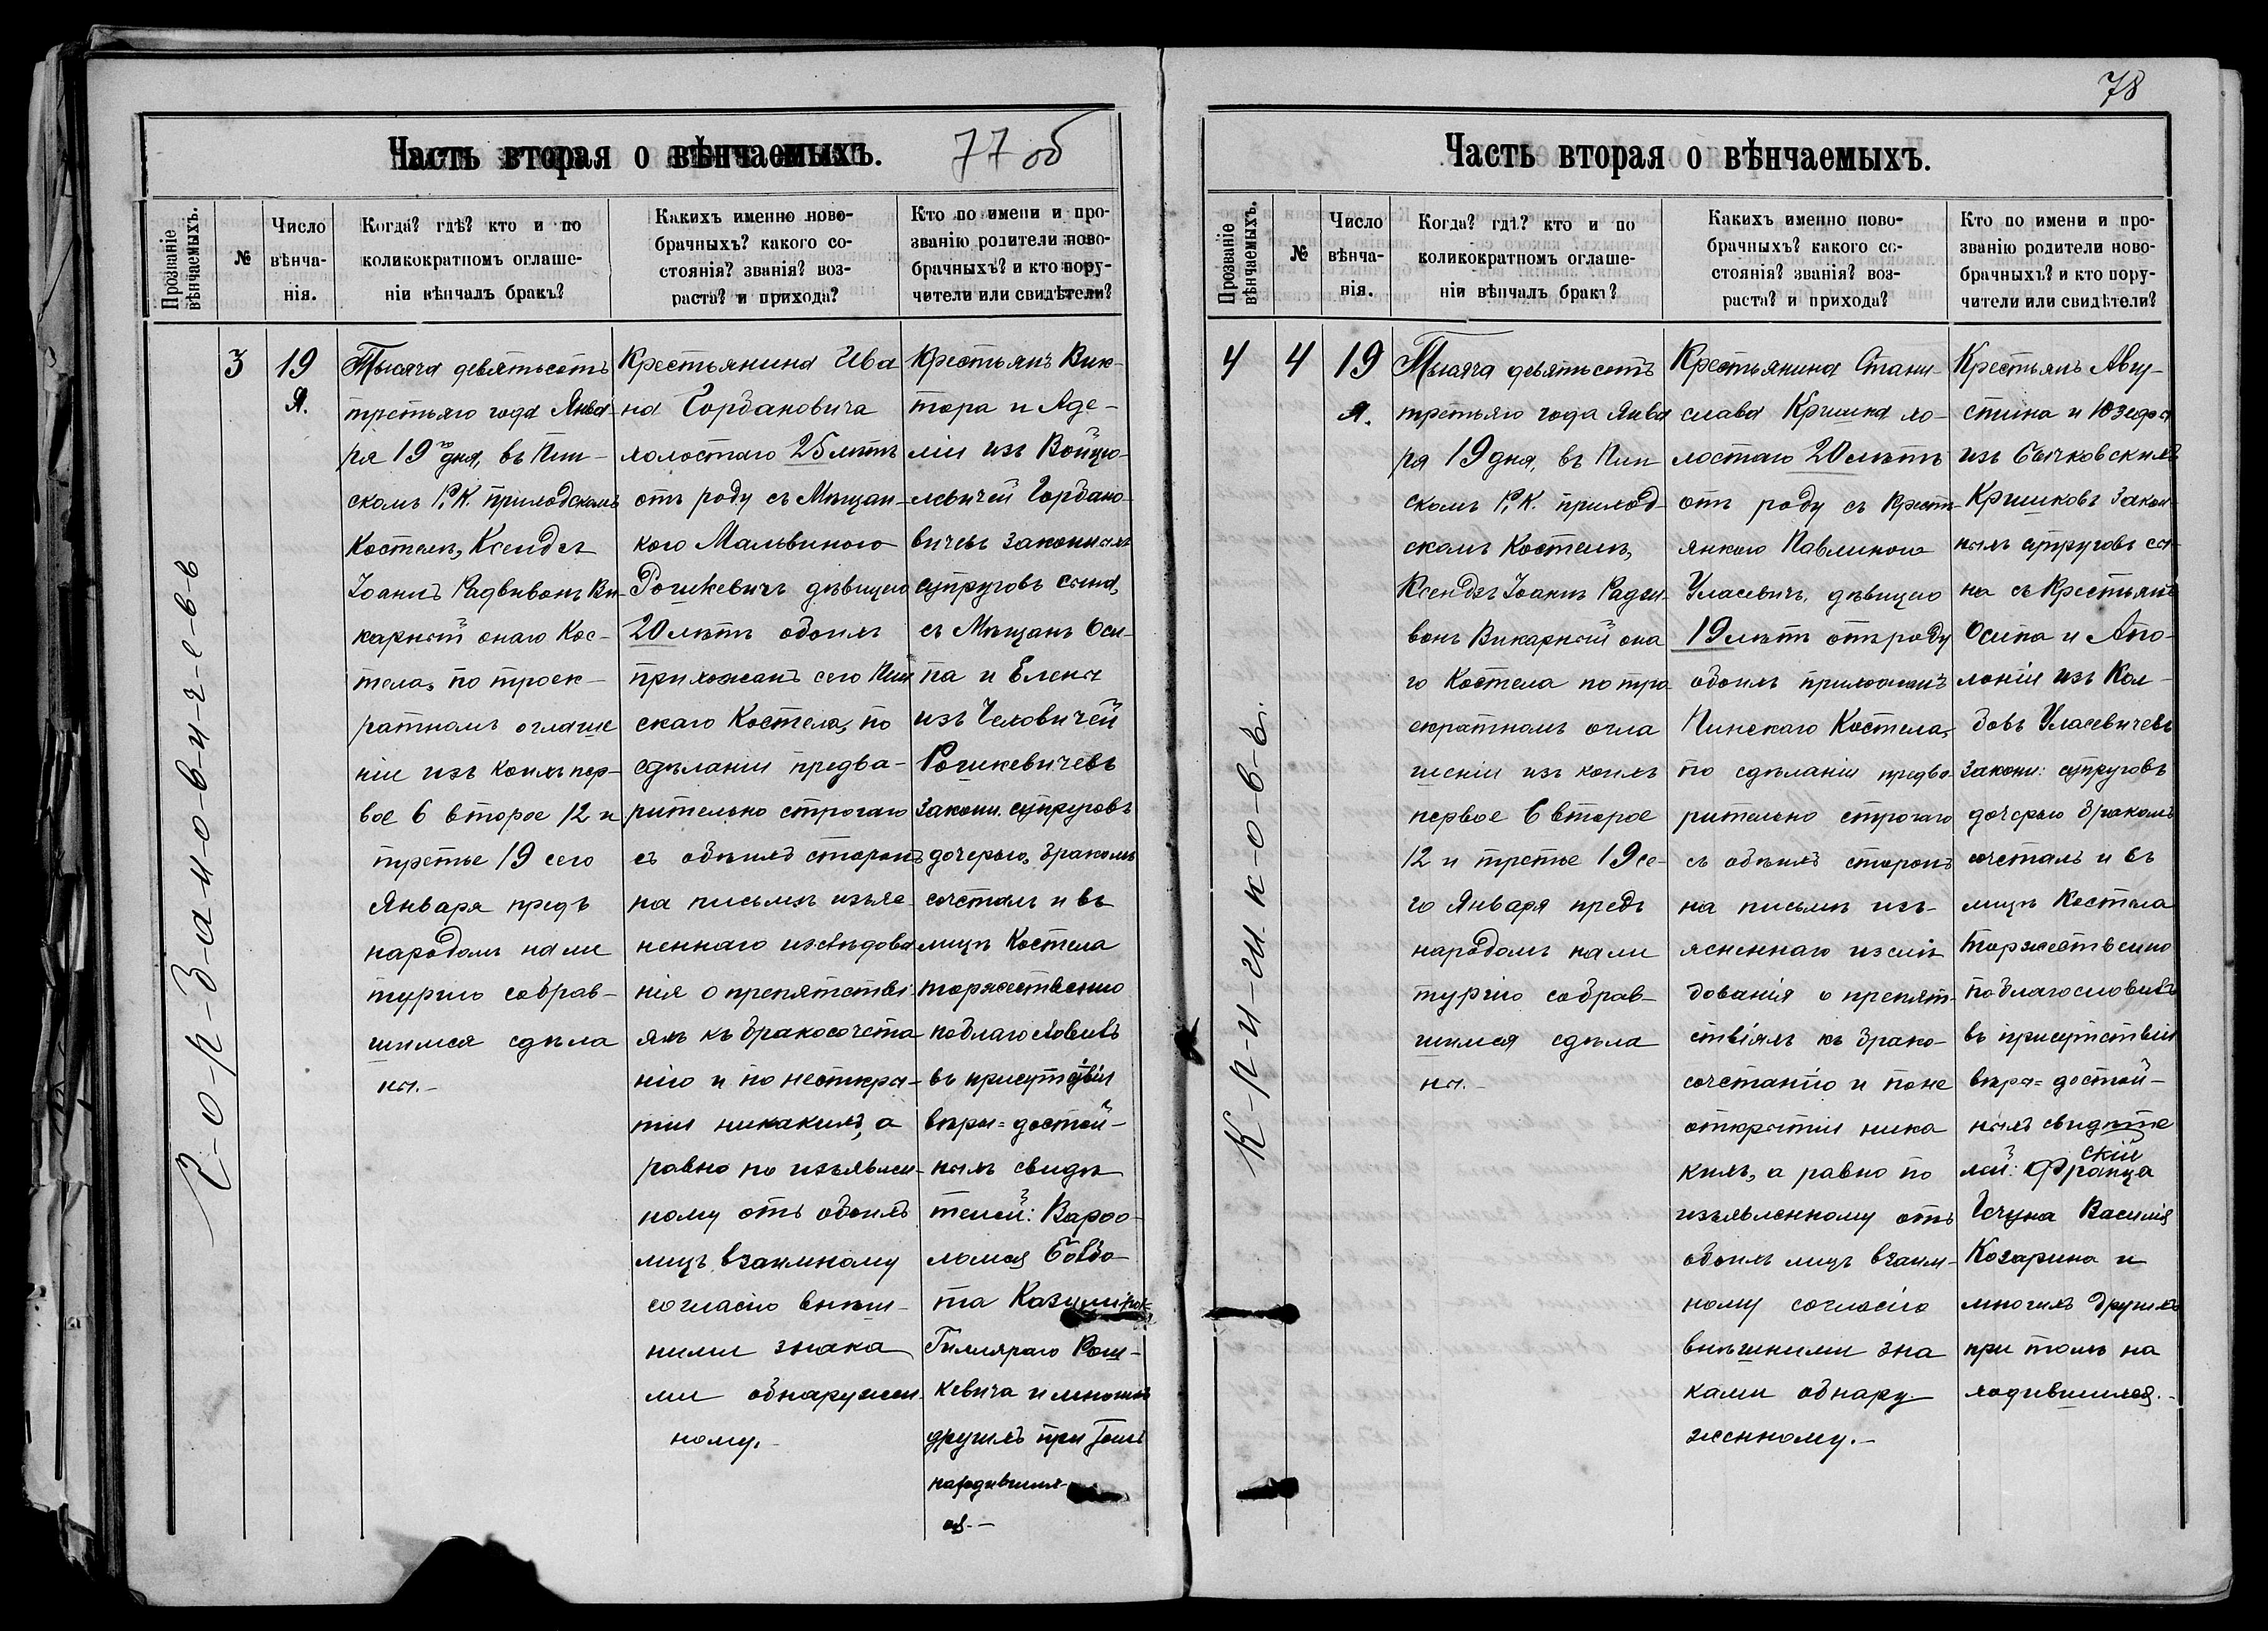 Часть вторая о вѣнчаемыхъ. 77 об
Прозваніе
вѣнчаемыхъ.
№
Число
вѣнча-
нія.
Когда? гдѣ? кто и по
коликократномъ оглаше-
ніи вѣнчалъ бракъ?
Какихъ именно ново-
брачныхъ? какого со-
стоянія? званія? воз-
раста? и прихода?
Кто по имени и про-
званію родители ново-
брачныхъ? и кто пору-
чители или свидѣтели?
3
19
Я.
Тысяча девятьсотъ
третьяго года Янва-
ря 19го дня, въ Пин-
скомъ Р. К. приходскомъ
Костелѣ, Ксендзъ
Іоаннъ Радзивонъ Ви-
карный онаго Кос-
тела, по троек-
ратномъ оглаше
ніи изъ коихъ пер-
вое 6 второе 12 и
третье 19 сего
Января предъ
народомъ на ли
тургію собрав-
шимся сдѣла
ны.-
Крестьянина Ива
на Горбановича
холостаго 25 лѣтъ
отъ роду съ Мѣщан-
кою Мальвиною
Рошкевичъ дѣвицею
20 лѣтъ обоихъ
прихожанъ сего Пин
скаго Костела, по
сдѣланіи предва-
рительно строгаго
съ обѣихъ сторонъ
на письмѣ изъяс
неннаго изслѣдова
нія о препятстві
яхъ къ бракосочета
нію и по неоткры-
тіи никакихъ, а
равно по изъявлен-
ному отъ обоихъ
лицъ взаимному
согласію внѣш-
ними знака
ми обнаружен
ному.-
Крестьянъ Вик-
тора и Аде-
ліи изъ Войцю-
левичей Горбано-
вичевъ законныхъ
супруговъ сына,
съ Мѣщанъ Оси-
па и Елены
изъ Чеховичей
Рошкевичевъ
законн. супруговъ
дочерью, бракомъ
сочеталъ и въ
лицѣ Костела
торжественно
поблагословилъ
въ присутствіи
вѣры=достой-
ныхъ свидѣ
телей: Варфо-
ломея
та
Гилляраго Рош-
кевича и многихъ
другихъ при томъ
находившихся
ся.-
Г-о-р-б-а-н-о-в-и-ч-е-в-ъ
Часть вторая о вѣнчаемыхъ. 78
Прозваніе
вѣнчаемыхъ.
№
Число
вѣнча-
нія.
Когда? гдѣ? кто и по
коликократномъ оглаше-
ніи вѣнчалъ бракъ?
Какихъ именно ново-
брачныхъ? какого со-
стоянія? званія? воз-
раста? и прихода?
Кто по имени и про-
званію родители ново-
брачныхъ? и кто пору-
чители или свидѣтели?
4
4
19
Я.
Тысяча девятьсотъ
третьяго года Янва
ря 19 дня, въ Пин
скомъ Р. К. приход-
скомъ Костелѣ,
Ксендзъ Іоаннъ Радзи-
вонъ Викарный она
го Костела по тро
екратномъ огла
шеніи изъ коихъ
первое 6 второе
12 и третье 19 се-
го Января предъ
народомъ на ли
тургію собрав-
шимся сдѣла
ны.-
Крестьянина Стани-
слава Кришка хо-
лостаго 20 лѣтъ
отъ роду съ Крест-
янкою Павлиною
Уласевичъ, дѣвицею
19 лѣтъ отъ роду
обоихъ прихожанъ
Пинскаго Костела,
по сдѣланіи предва-
рительно строгаго
съ обѣихъ сторонъ
на письмѣ изъ-
ясненнаго изслѣ
дованія о препят-
ствіяхъ къ брако-
сочетанію и поне
открытіи ника
кихъ, а равно по
изъявленному отъ
обоихъ лицъ взаим-
ному согласію
внѣшними зна
ками обнару-
женному.-
Крестьянъ Авгу-
стина и Юзефа
изъ
Кришковъ закон-
ныхъ супруговъ сы-
на съ Крестьянъ
Осипа и Апо-
лоніи изъ Кол-
бовъ Уласевичевъ
законн: супруговъ
дочерью бракомъ
сочеталъ и въ
лицѣ Костела
торжественно
поблагословилъ
въ присутствіи
вѣры=достой-
ныхъ свидѣте
лей: Франца
скій
Василія
Козарина и
многихъ другихъ
при томъ на
ходившихся.-
К-р-и-ш-к-о-в-ъ.